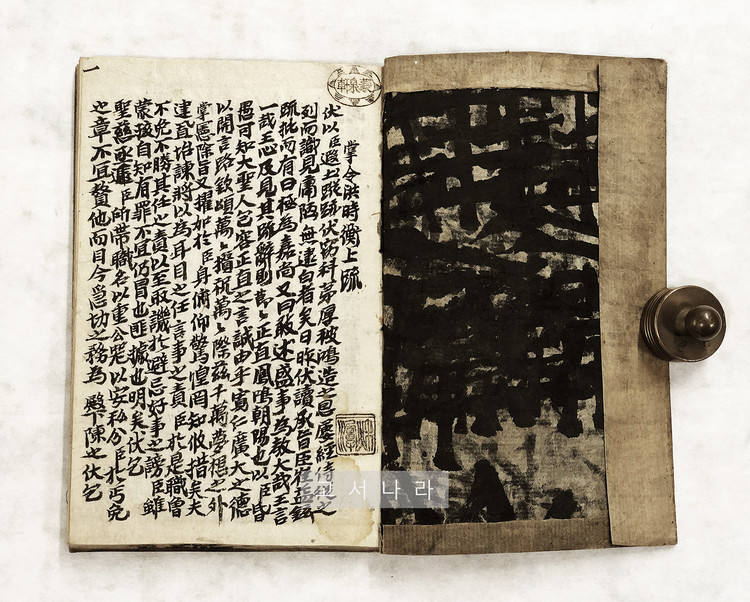 一
掌令洪時衡上疏
伏以臣遐土蹤跡伏窃科第厚被鴻造之恩屢經侍從之
列而識見庸陋無建白者矣日昨伏讀承旨臣崔益鉉
疏批而有曰極為嘉尙又曰敢述盛事為教大哉王言
一哉王心及見其疏辭則萬〻正直鳳鳴朝陽也以臣昏
愚可知大聖人包容正直之言誠由乎寬仁廣大之德
以開言路欽頌萬〻攢祝萬〻際玆千萬夢想之外
掌憲除旨又擢加於臣身俯仰驚惶罔知攸措矣夫
達直培諫將以為耳目之任言事之責臣於是職曾
不免不勝其任之責以至取譏於避忌好事之謗臣雖
蒙孩自知有罪不宜仍冒也匪據也明矣伏乞
聖慈亟遞臣所帶職名以重公器以安私分臣於丐免
之章不宜贅他而目今爲切之務為 殿下陳之伏乞
고서나라